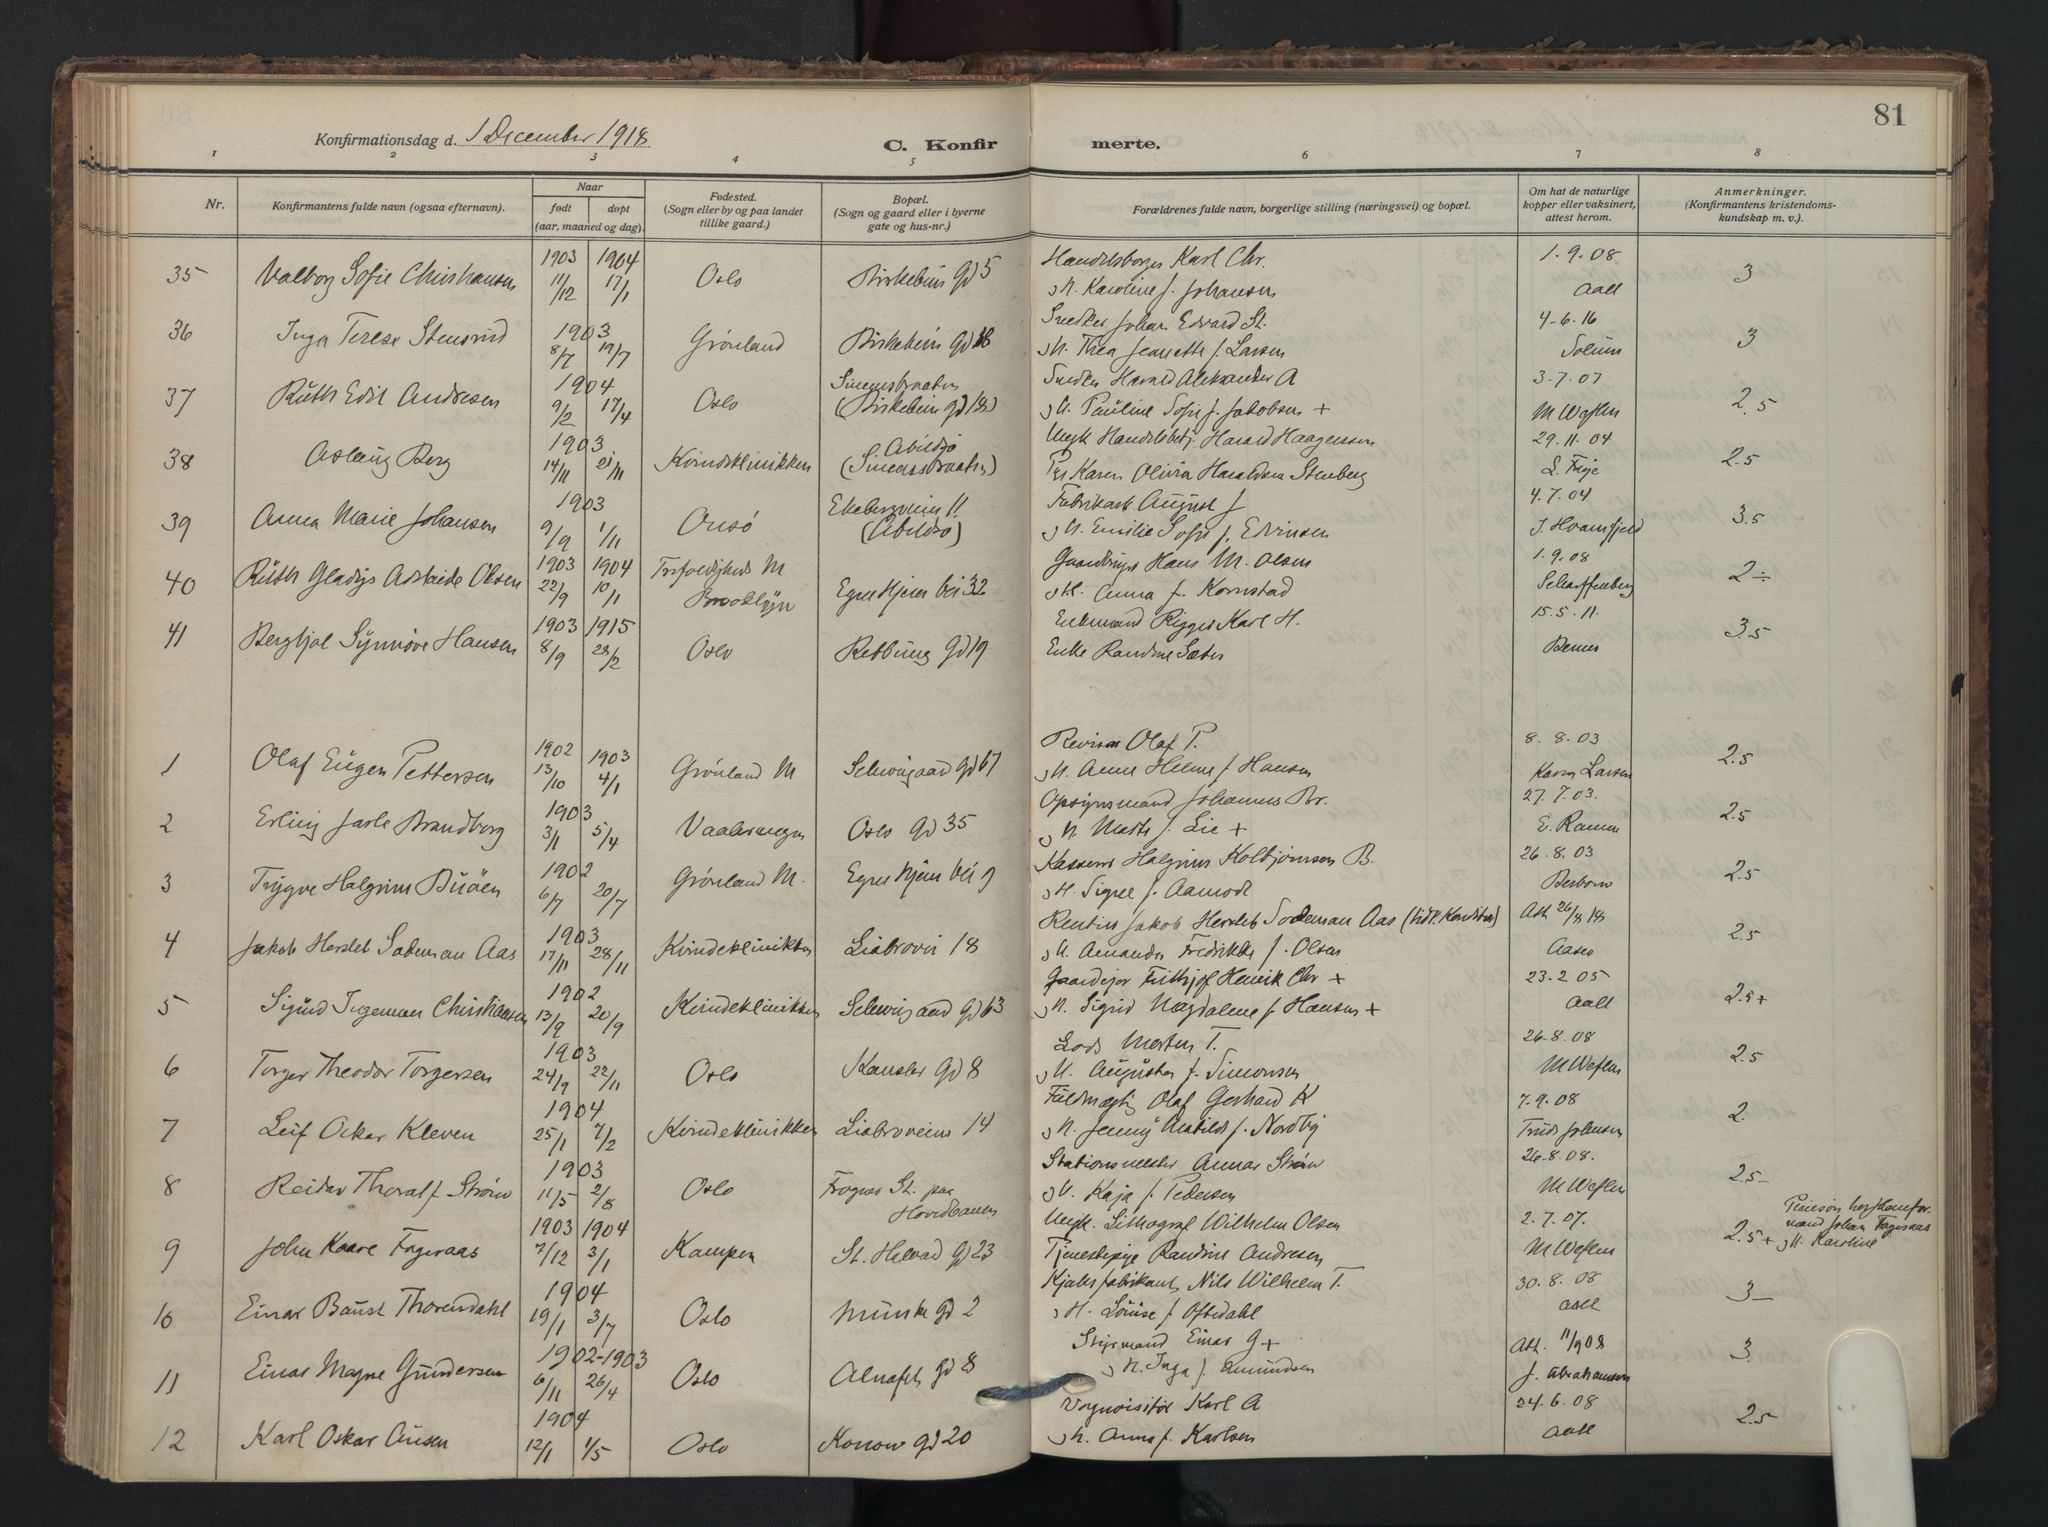 81
Konfirmationsdag d. 1 December 1918
C. Konfirmerte.
1 2 3 4 5 6 7 8
Nr.
Konfirmantens fulde navn (ogsaa efternavn).
Naar
født
døpt
(aar, maaned og dag).
Fødested.
(Sogn eller by og paa landet
tillike gaard.)
Bopæl.
(Sogn og gaard eller i byerne
gate og hus-nr.)
Forældrenes fulde navn, borgerlige stilling (næringsvei) og bopæl.
Om hat de naturlige
kopper eller vaksinert,
attest herom.
Anmerkninger.
(Konfirmantens kristendoms-
kundskap m. v.).
1903 1904 Handelsborger Karl Chr. 1.9.08
35 Valborg Sofie Christiansen 11/12 17/1 Oslo Birkebein gd 5 3
H. Karoline f. Johansen Aall
1903 Snedker Johan Edvard St. 4-6.16
36 Inga Terese Stensrud 8/7 19/7 Grønland Birkebein gd 3
H. Thea Jeanette f. Larsen Solum
1904 Simensbraaten Snedker Harald Aleksander A 3.7.07
37 Ruth Edit Andresen 9/2 17/4 Oslo (Birkebein gd 18) 2.5
H. Pauline Sofie f. Jakobsen + M Weflen
1903 Abildsø Ungk Handelsbetj. Harald Haagensen 29.11.04
38 Aslaug Berg 14/11 21/11 Kvindeklinikken (Simensbraaten) 2.5
Pk Karen Olivia Haraldsen Stenberg
1903 Ekebergveien 11 Fabrikarb August J 4.7.04
39 Anna Marie Johansen 9/9 1/11 Onsø (Abildsø) 3.5
H. Emilie Sofie f. Edvinsen
1903 1904 Trefoldigheds M Hans M. Olsen 1.9.08
40 Ruth Gladys Adelaide Olsen 22/9 10/1 Brooklyn Egne Hjem vei 32 2÷
H. Anna f. Kornstad Scharffenberg
1903 1915 Enkemand Rigger Karl H. 15.5.11.
41 Bergljot Synnøve Hansen 8/9 28/2 Oslo Rebbung gd 19 3.5
Enke Randine Sæter
1902 1903 Revisor Olaf P. 8.8.03
1 Olaf Eugen Pettersen 13/10 4/1 Grønland M Schweigaard gd 67 2.5
H. Anne Helene f. Hansen Karen Larsen
1903 Opsynsmand Johannes Br. 27.7.03.
2 Erling Jarle Brandborg 3/1 5/4 Vaalerengen Oslo gd 35 2.5
H. Marte f. Lie +
1902 Kasserer Halgrim Kolbjørnsen B. 26.8.03
3 Trygve Halgrim Buøen 6/7 20/7 Grønland M. Egne hjem vei 9 2.5
H. Sigrid f. Aamodt
1903 Rentier Jakob Hersleb Sodeman Aas (tidl. Konditor) Att. 26/8 18
4 Jakob Hersleb Sodeman Aas 17/11 28/11 Kvindeklinikken Liabrovei 18 2.5
H. Amanda Fredrikke f. Olsen Aasen
1902 Gaardeier Fritjof Henrik Chr + 23.2 05
5 Sigurd Ingeman Christiansen 13/9 20/9 Kvindeklinikken Schweigaard gd 63 2.5+
H. Sigrid Magdalene f. Hansen + Aall
1903 Lods Morten T. 26-8.08
6 Torger Theodor Torgersen 24/9 22/11 Oslo Kansler gd 8 2.5
H. Augusta f. Simonsen M Weflen
1904 Fuldmægtig Olaf Gerhard K 7.9.08
7 Leif Oskar Kleven 25/1 7/2 Kvindeklinikken Liabroveien 14 2.
H. Jenny Matilde f. Nordby Truds Johnsen
1903 Stationsmester Annar Strøm 26-8.08.
8 Reidar Thoralf Strøm 11/5 2/8 Oslo Frogner St. paa 2.5-
Hovedbanen H. Kaja f. Pedersen M Weflen
1903 1904 Ungk. Lithograf Wilhelm Olsen 2.7.07.
9 John Kaare Fageraas 7/12 3/1 Kampen St. Halvard gd 23 2.5+
Tjenestepige Randine Andresen M Weflen
Johan Fageraas
H. Karoline
1904 Kjeksfabrikant Nils Wilhelm T. 30.8.08
10 Einar Thorendahl 19/1 3/7 Oslo Munke gd 2 3-
H. Louise f. Oftedahl Aall
1902-1903 Styrmand Einar G + Att. 11/9 08
11 Einar Magne Gundersen 6/11 26/4 Oslo Alnafet gd 8 3.
H. Inga f. Amundsen J. Abrahamsen
1904 Vognvisitør Karl A 24.6.08
12 Karl Oskar Ausen 12/1 1/5 Oslo Konow gd 20 2.5
H. Anna f. Karlsen Aall